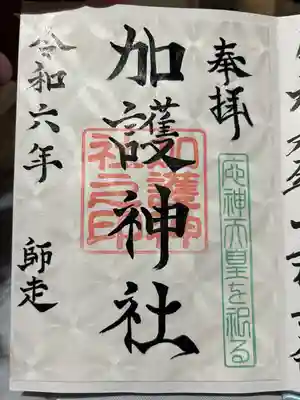 奉拝
応神天皇を祀る
加護神社
加護神社之印
令和六年 師走